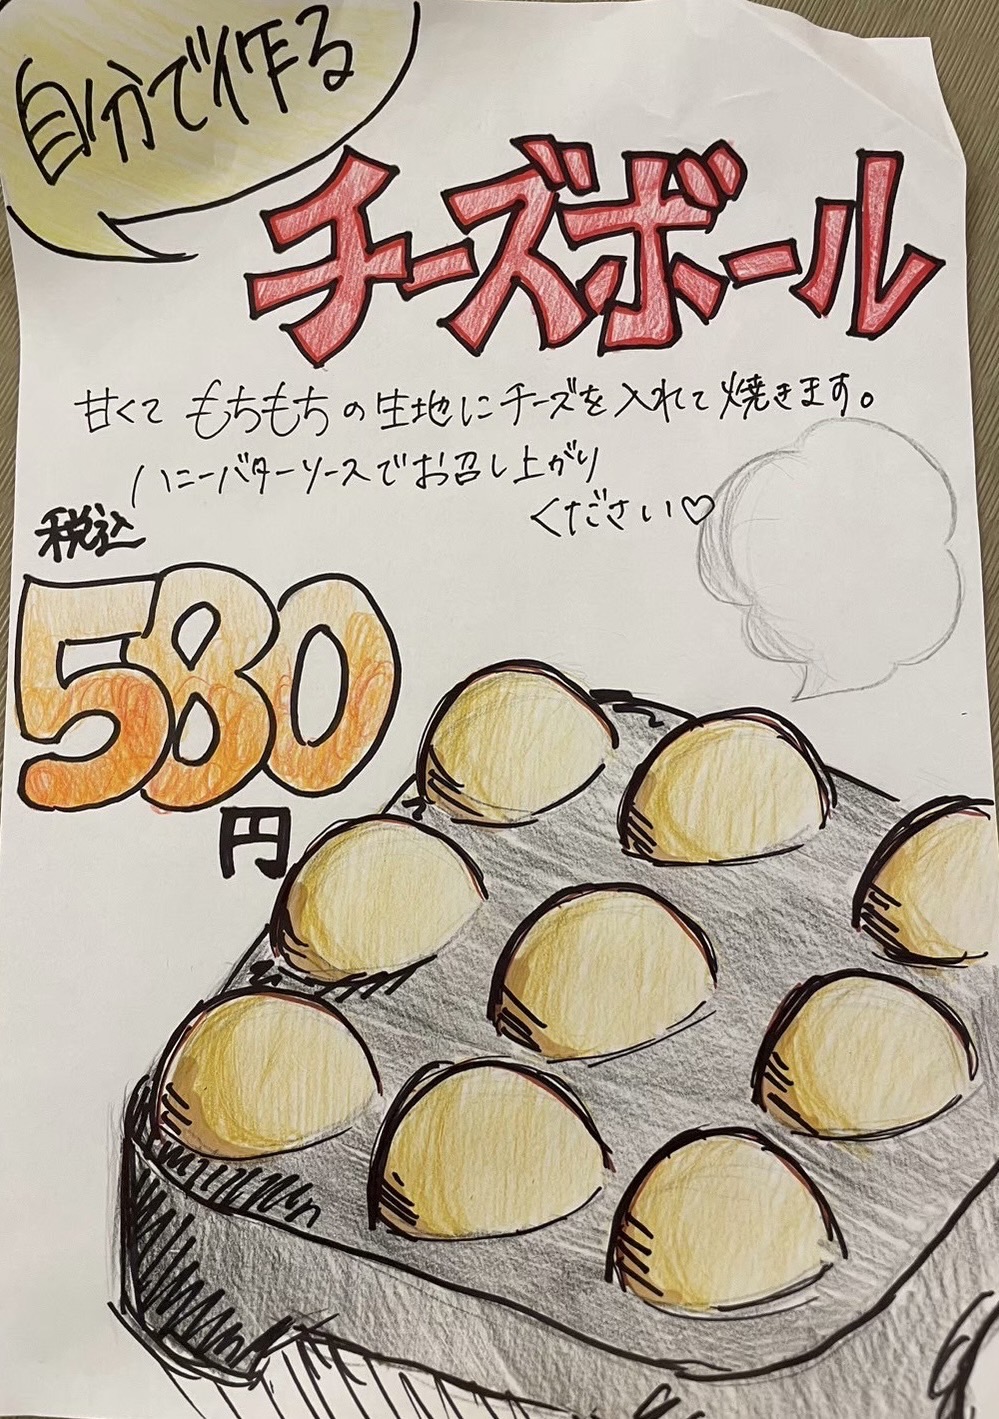 自分で作る
チーズボール
甘くて もちもちの生地にチーズを入れて焼きます。
ハニーバターソースでお召し上がり
ください♡
税込
580
円